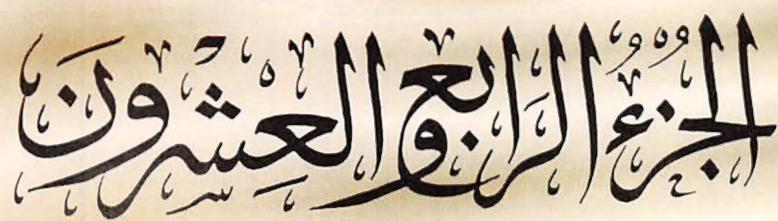 الجُزْءُ الرَّابِعُ والعِشْرُونَ